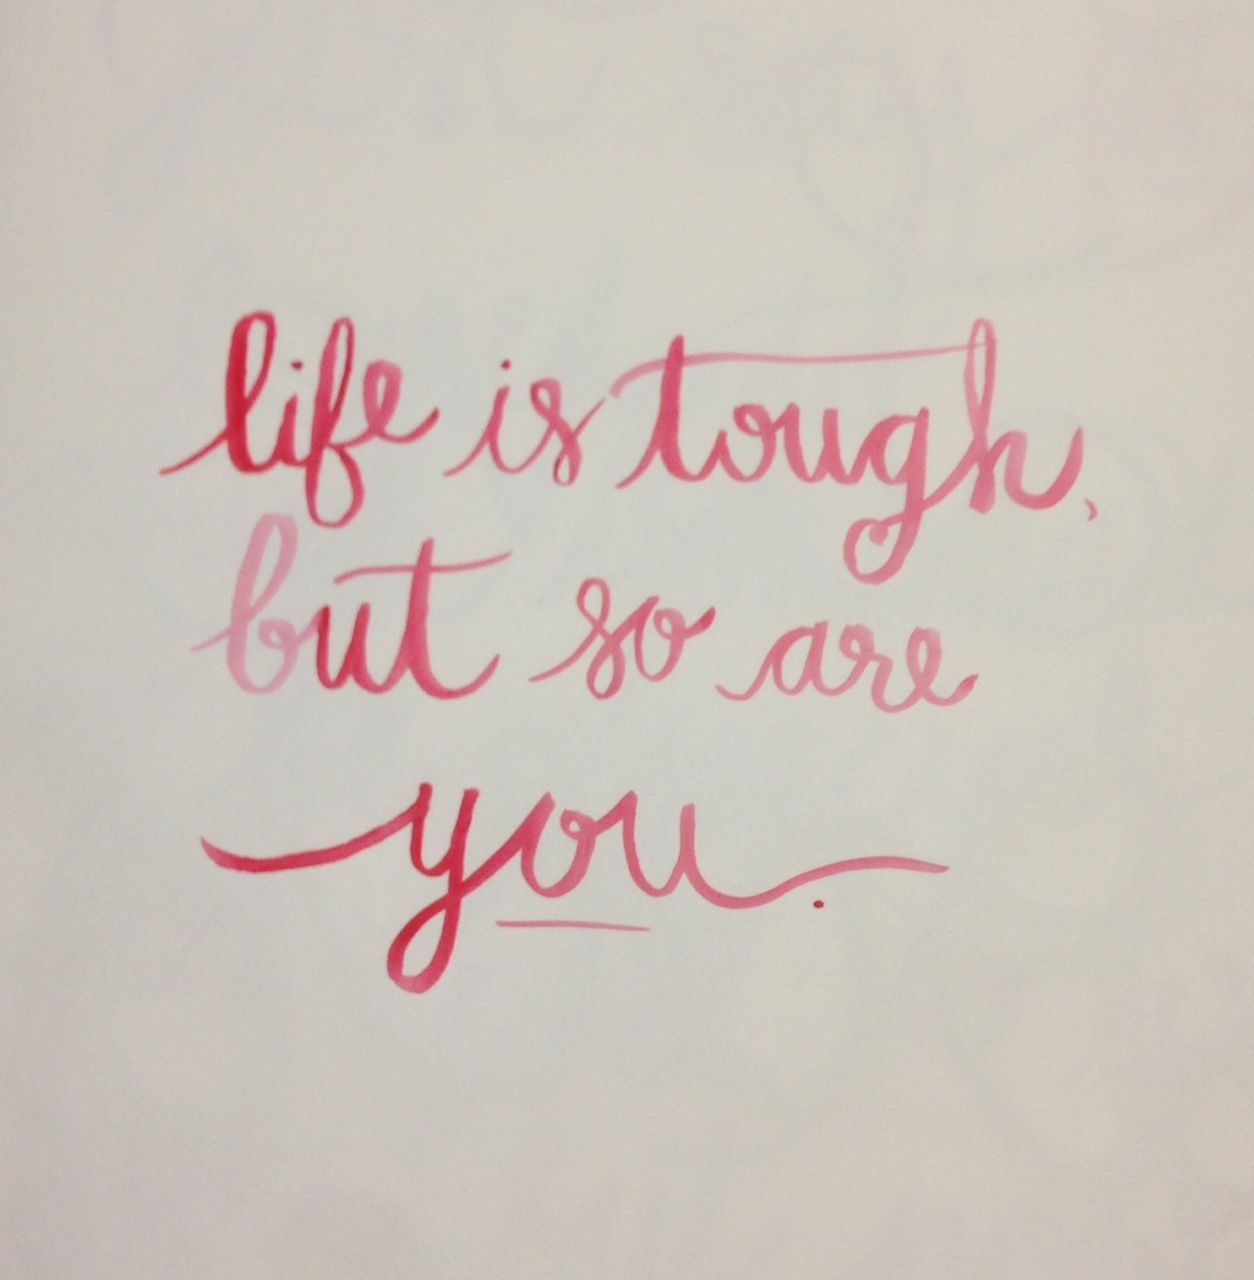 life is tough,
but so are
you.